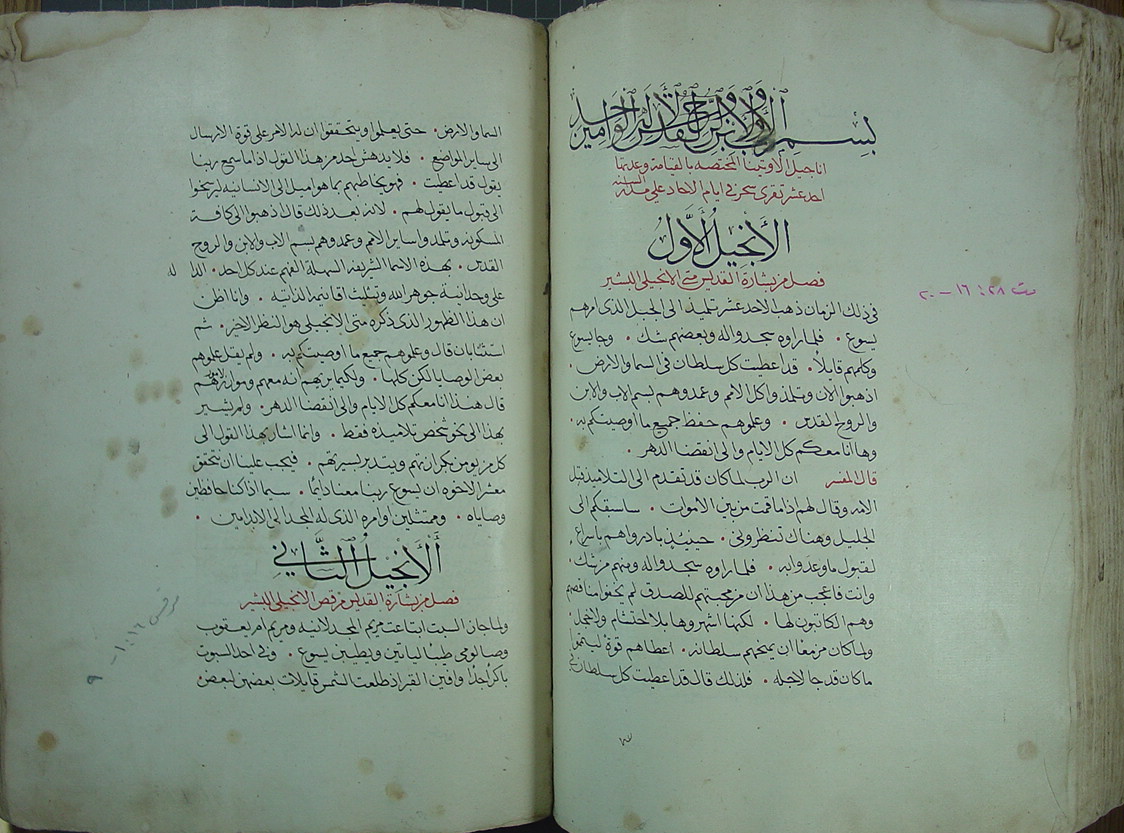 بسم الاب والابن والروح القدس الاله الواحد امين
اناجيل الاوثينا المختصه بالقيامة وعدتها
احد عشر تقرى سحر في ايام الاحاد على مدار السنه
الأنجيل الأول
فصل من بشارة القديس متى الانجيلي البشير
في ذلك الزمان ذهب الاحد عشر تلميذ الى الجبل الذي امرهم
يسوع . فلما راوه سجدوا له وبعضهم شك . وجا يسوع
وكلمهم قايلاً . قد اعطيت كل سلطان في السما والارض .
اذهبوا الان وتلمذوا كل الامم وعمدوهم بسم الاب والابن
والروح القدس . وعلموهم حفظ جميع ما اوصيتكم به .
وها انا معكم كل الايام والى انقضا الدهر .
قال المفسر ان الرب لما كان قد تقدم الى التلاميذ قبل
الامه وقال لهم اذا ما قمت من بين الاموات . ساسبقكم الى
الجليل وهناك تنظروني . حينيذٍ بادروا هم باسراع
لقبول ما وعدوا به . فلما راوه سجدوا له ومنهم من شك .
وانت فاعجب من هذا ان من محبتهم للصدق لم يخفوا مناقصهم
وهم الكاتبون لها . لكنها اشهروها بلا احتشام ولا خجل
ولما كان مزمعاً ان يمنحهم سلطانه . اعطاهم قوة ليتمموا
ما كان قد جا لاجله . فلذلك قال قد اعطيت كل سلطان في
مت ٢٨: ١٦ – ٢٠
السما والارض . حتى يعلموا ويتحققوا ان له الامر على قوة الارسال
الى ساير المواضع . فلا يدهش احد من هذا القول اذا ما سمع ربنا
يقول قد اعطيت . فهو يخاطبهم بما هو اميل الى الانسانيه ليرسخوا
الى قبول ما يقول لهم . لانه بعد ذلك قال اذهبوا الى كافة
المسكونه وتلمذوا ساير الامم وعمدوهم بسم الاب والابن والروح
القدس . بهذه الاسما الشريفه السهلة الفهم عند كل احد . الداله
على وحدانية جوهر الله وتثليث اقانيمه الذاتيه . وانا اظن
ان هذا الظهور الذي ذكره متى الانجيلي هو النظر الاخير . ثم
استثنا بان قال وعلموهم جميع ما اوصيتكم به . ولم يقل علموهم
بعض الوصايا لكن كلها . ولكيما يريهم انه معهم وموازرهم
قال هنذا انا معكم كل الايام والى انقضا الدهر . ولم يشير
بهذا الى نحو شخص تلاميذه فقط . وانما اشار بهذا القول الى
كل من يومن بكرازتهم ويتدبر بسيرتهم . فيجب علينا ان نتحقق
معشر الاخوه ان يسوع ربنا معنا دايماً . سيما اذا كنا حافظين
وصاياه . وممتثلين اوامره الذي له المجد الى الابد امين .
ألأنجيل الثاني
فصل من بشارة القديس مرقص الانجيلي البشير
ولما جاز السبت ابتاعت مريم المجدلانيه ومريم ام يعقوب
وصالومي طيباً لياتين ويطيبن يسوع . وفي احد السبوت
باكراً جداً وافين القبر اذ طلعت الشمس قايلات بعضهن لبعض
مرقس ١٦: ١ – ٩